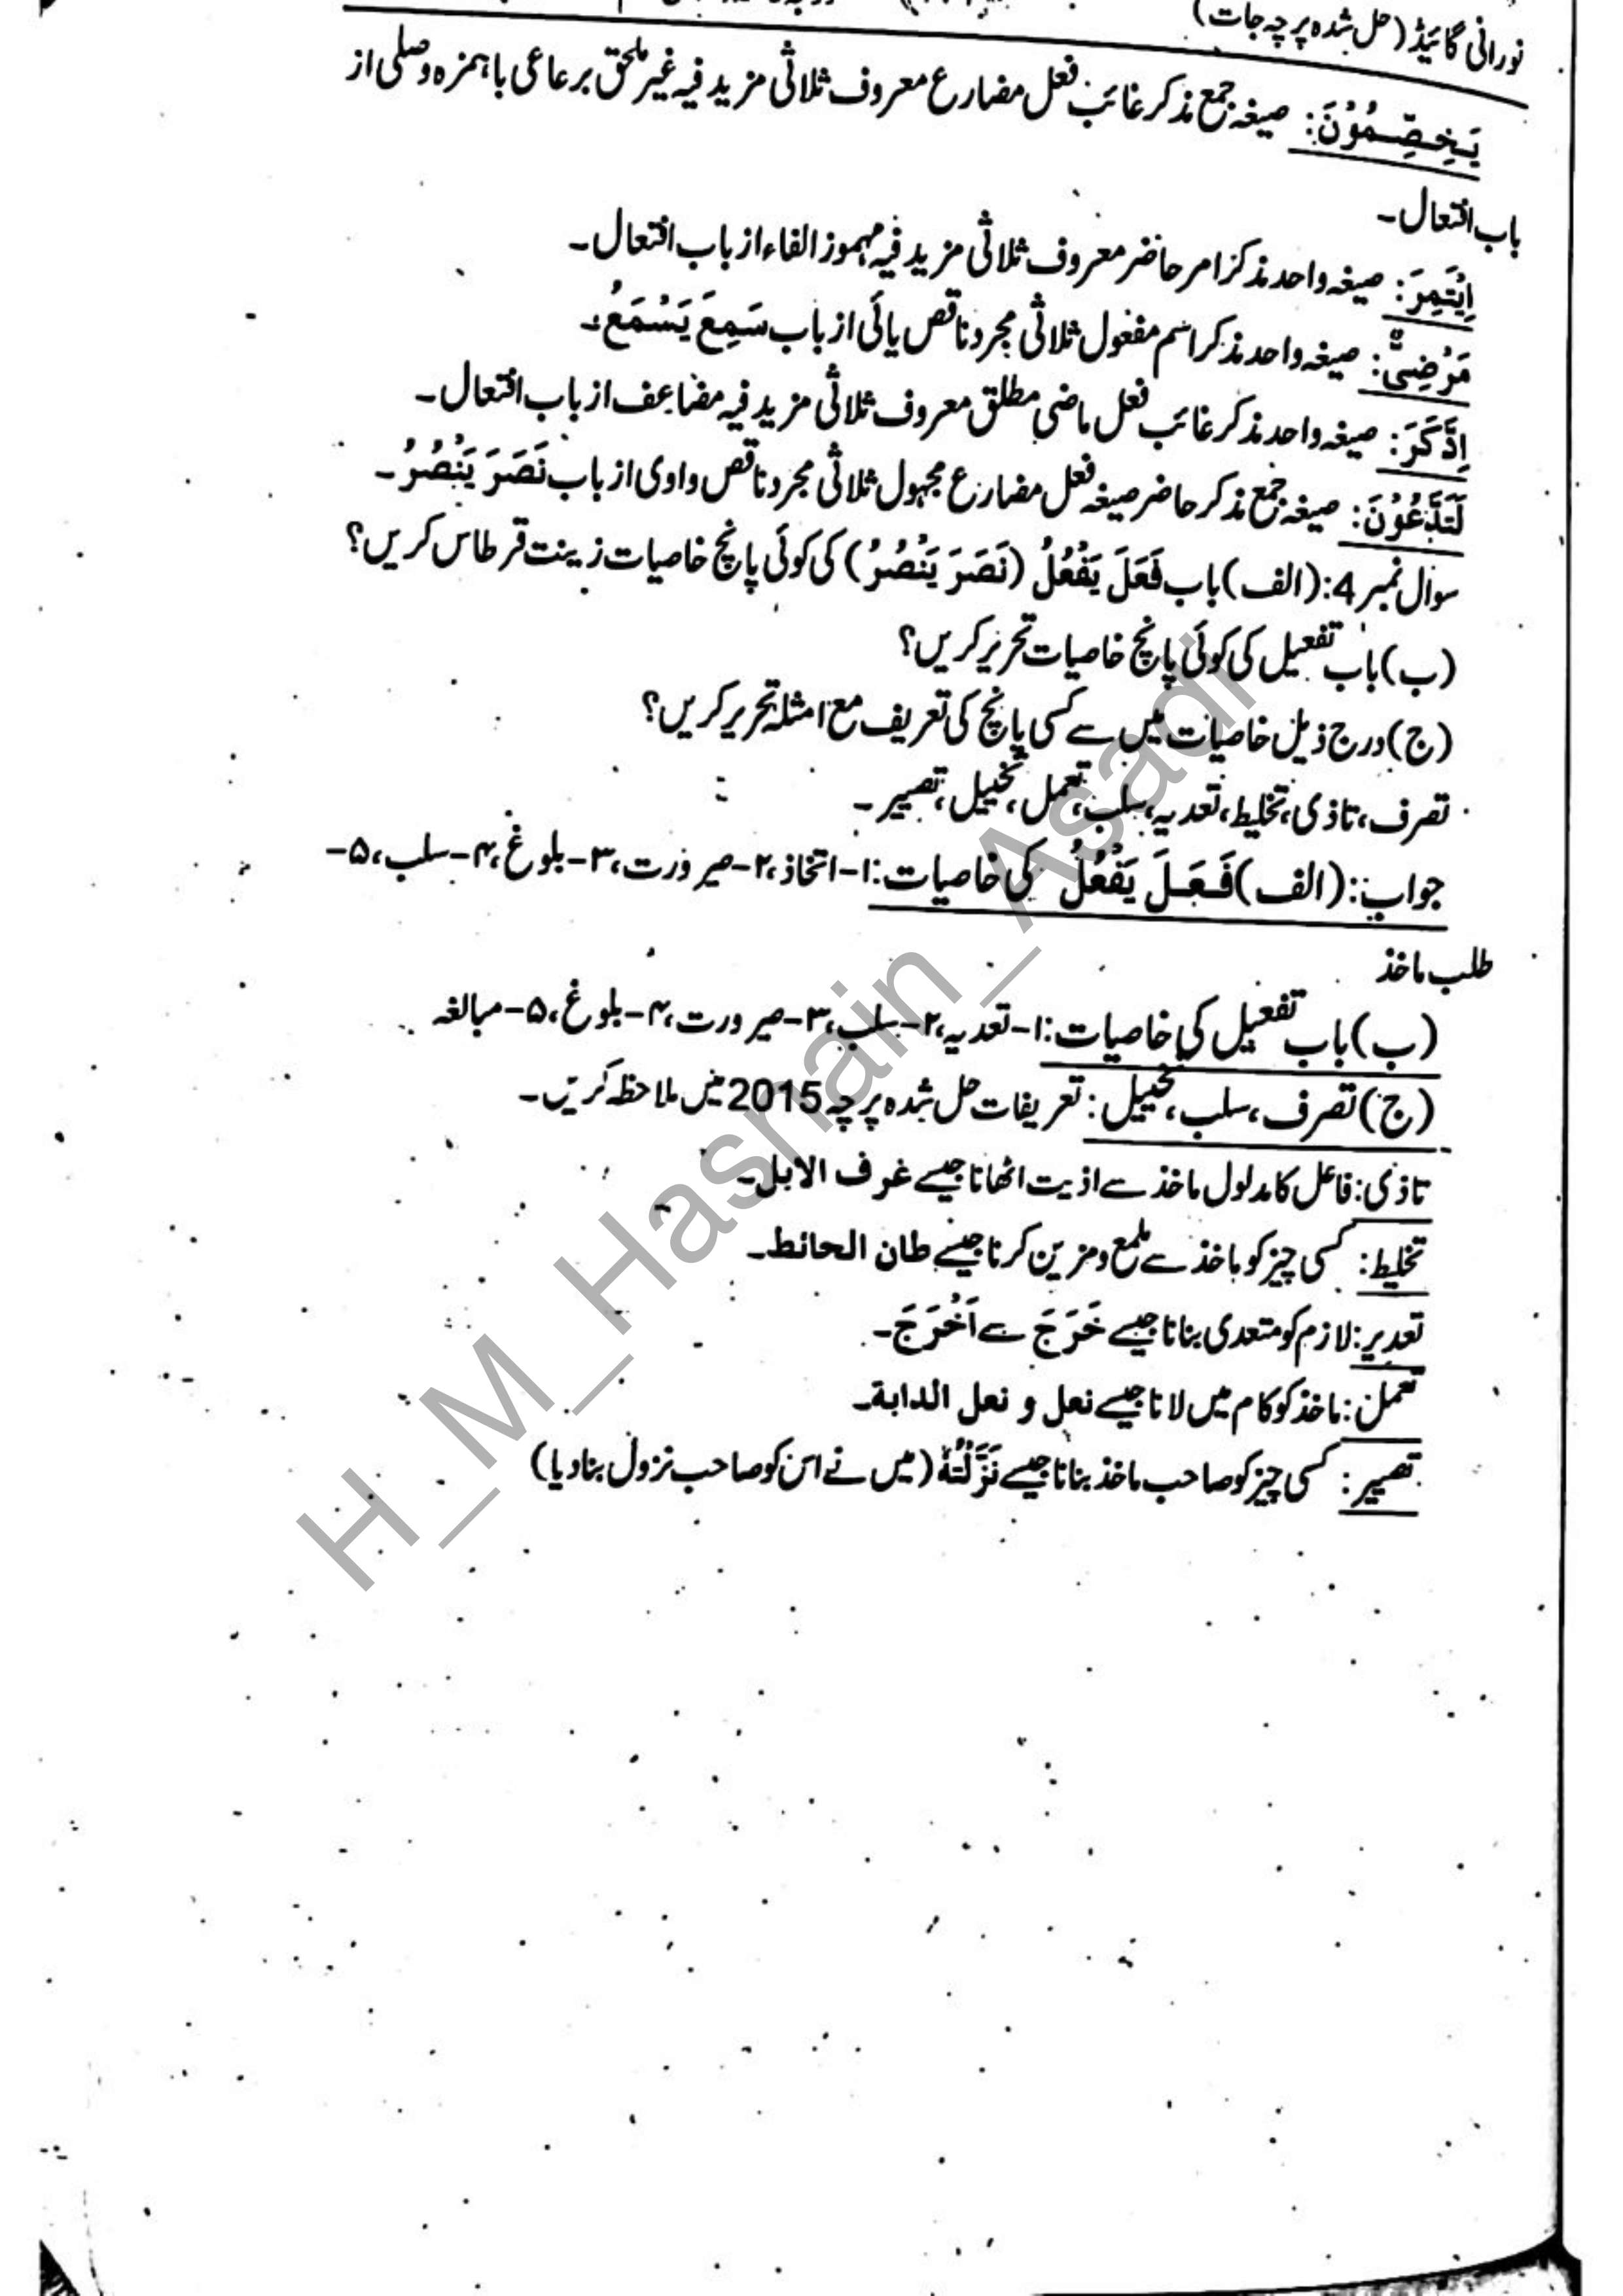 نورانی گائیڈ (حل شدہ پرچہ جات)
یَخِصِّمُوْنَ: صیغہ جمع مذکر غائب فعل مضارع معروف ثلاثی مزید فیہ غیر ملحق برعاعی باہمزہ وصلی از
باب افتعال۔
اِیْتَمِرَ: صیغہ واحد مذکر امر حاضر معروف ثلاثی مزید فیہ مہموز الفاء از باب افتعال۔
مَرْضِیٌّ: صیغہ واحد مذکر اسم مفعول ثلاثی مجرد ناقص یائی از باب سَمِعَ یَسْمَعُ۔
اِذَّکَرَ: صیغہ واحد مذکر غائب فعل ماضی مطلق معروف ثلاثی مزید فیہ مضاعف از باب افتعال۔
صیغہ جمع مذکر حاضر صیغہ فعل مضارع مجہول ثلاثی مجرد ناقص واوی از باب نَصَرَ یَنْصُرُ۔
سوال نمبر 4: (الف) باب فَعَلَ یَفْعُلُ (نَصَرَ یَنْصُرُ) کی کوئی پانچ خاصیات زینت قرطاس کریں؟
(ب) باب تفعیل کی کوئی پانچ خاصیات تحریر کریں؟
(ج) درج ذیل خاصیات میں سے کسی پانچ کی تعریف مع امثلہ تحریر کریں؟
تصرف، تاذی، تخلیط، تعدیہ، سلب، تعمل، تخییل، تصییر۔
جواب: (الف) فَعَلَ یَفْعُلُ کی خاصیات: ۱- اتخاذ، ۲- صیرورت، ۳- بلوغ، ۴- سلب، ۵-
طلب ماخذ
(ب) باب تفعیل کی خاصیات: ۱- تعدیہ، ۲- سلب، ۳- صیرورت، ۴- بلوغ، ۵- مبالغہ
(ج) تصرف، سلب، تخییل: تعریفات حل شدہ پرچہ 2015 میں ملاحظہ کریں۔
تاذی: فاعل کا مدلول ماخذ سے اذیت اٹھانا جیسے غرف الابل۔
تخلیط: کسی چیز کو ماخذ سے ملمع و مزین کرنا جیسے طان الحائط۔
تعدیر: لازم کو متعدی بنانا جیسے خَرَجَ سے اَخْرَجَ۔
تعمل: ماخذ کو کام میں لانا جیسے نعل و نعل الدابة۔
تصییر: کسی چیز کو صاحب ماخذ بنانا جیسے نَزَّلْتُهٗ (میں نے اس کو صاحب نزول بنا دیا)
H_M_Hasnain_Asadi